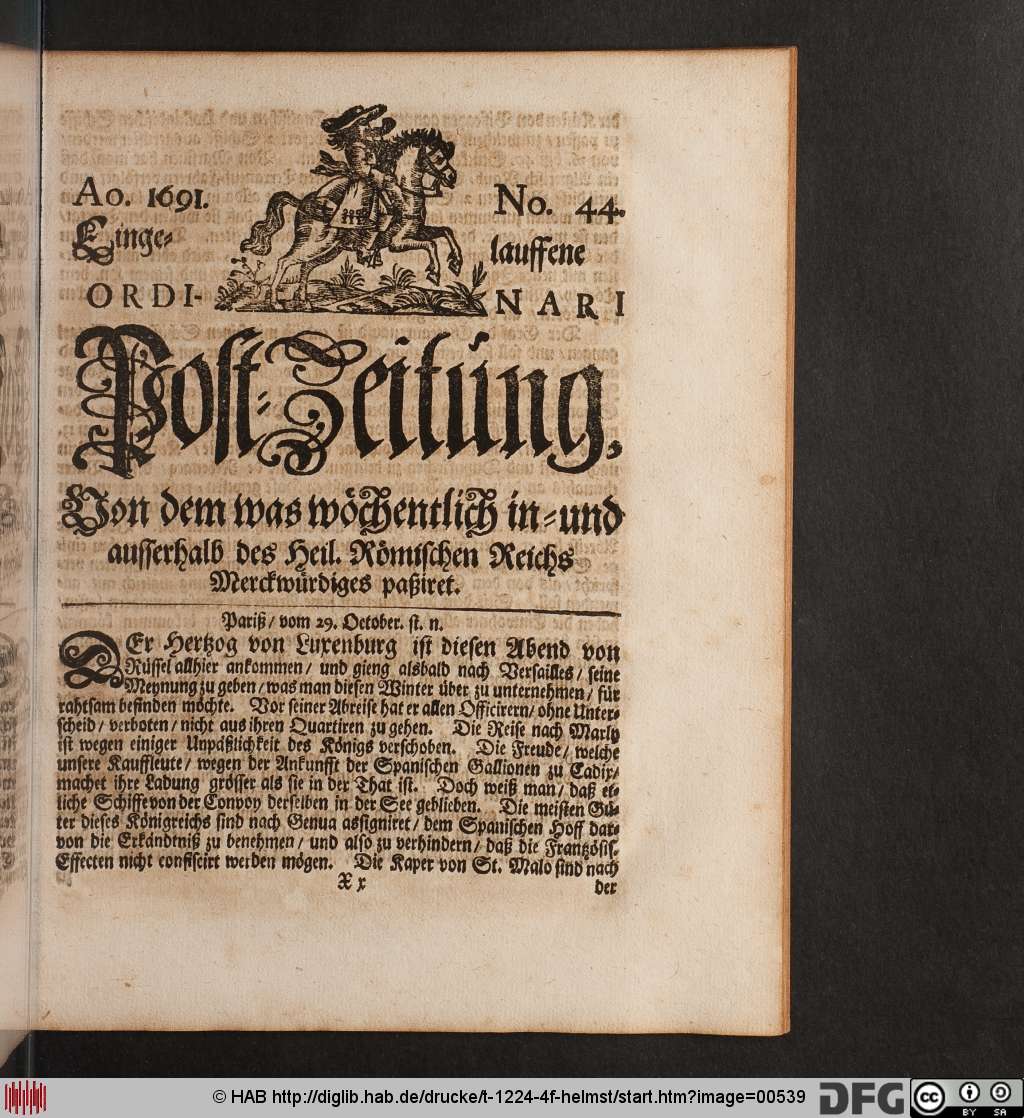 Ao. 1691. No. 44.
Einge- lauffene
ORDI- NARI
Post-Zeitung,
Von dem was wöchentlich in- und
ausserhalb des Heil. Römischen Reichs
Merckwürdiges paßiret.
Pariß / vom 29. October. st. n.
DEr Hertzog von Luxenburg ist diesen Abend von
Rüssel allhier ankommen / und gieng alsbald nach Versailles / seine
Meynung zu geben / was man diesen Winter über zu unternehmen / für
rahtsam befinden möchte. Vor seiner Abreise hat er allen Officirern / ohne Unter-
scheid / verboten / nicht aus ihren Quartiren zu gehen. Die Reise nach Marly
ist wegen einiger Unpäßlichkeit des Königs verschoben. Die Freude / welche
unsere Kauffleute / wegen der Ankunfft der Spanischen Gallionen zu Cadix /
machet ihre Ladung grösser als sie in der That ist. Doch weiß man / daß et-
liche Schiffe von der Convoy derselben in der See geblieben. Die meisten Gü-
ter dieses Königreichs sind nach Genua assigniret / dem Spanischen Hoff dar-
von die Erkändtniß zu benehmen / und also zu verhindern / daß die Frantzösis.
Effecten nicht confiscirt werden mögen. Die Kaper von St. Malo sind nach
X x der
© HAB http://diglib.hab.de/drucke/t-1224-4f-helmst/start.htm?image=00539
DFG
cc
BY SA